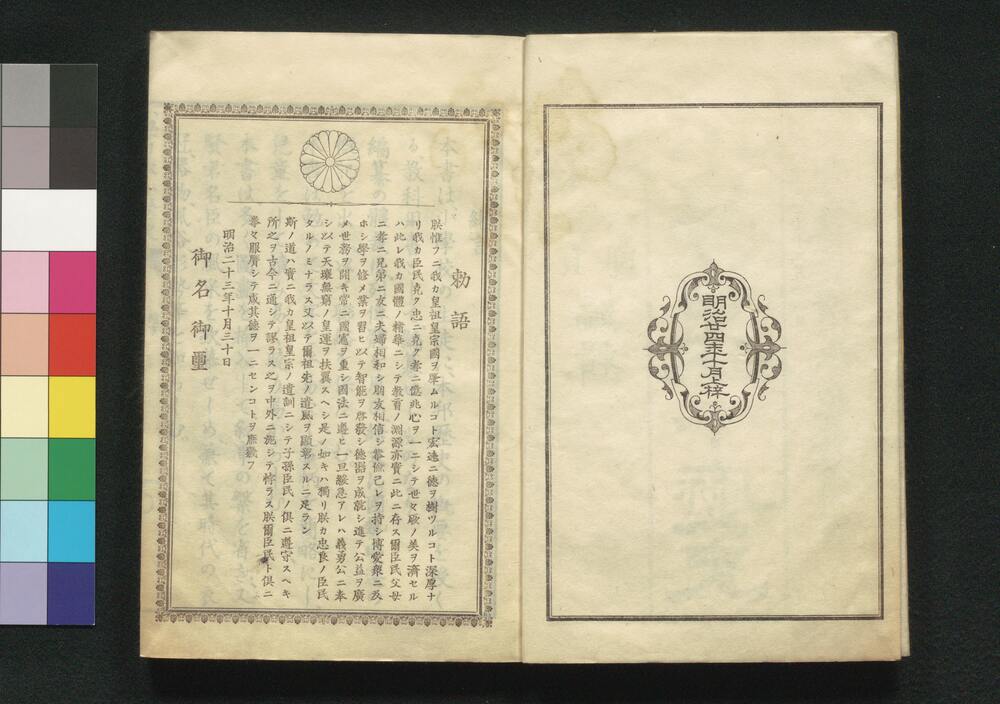 明治廿四年十月上梓
勅語
朕惟フニ我カ皇祖皇宗國ヲ肇ムルコト宏遠ニ德ヲ樹ツルコト深厚ナ
リ我カ臣民克ク忠ニ克ク孝ニ億兆心ヲ一ニシテ世々厥ノ美ヲ濟セル
ハ此レ我カ國體ノ精華ニシテ教育ノ淵源亦實ニ此ニ存ス爾臣民父母
ニ孝ニ兄弟ニ友ニ夫婦相和シ朋友相信シ恭儉己レヲ持シ博愛衆ニ及
ホシ學ヲ修メ業ヲ習ヒ以テ智能ヲ啓發シ德器ヲ成就シ進テ公益ヲ廣
メ世務ヲ開キ常ニ國憲ヲ重シ國法ニ遵ヒ一旦緩急アレハ義勇公ニ奉
シ以テ天壤無窮ノ皇運ヲ扶翼スヘシ是ノ如キハ獨リ朕カ忠良ノ臣民
タルノミナラス又以テ爾祖先ノ遺風ヲ顯彰スルニ足ラン
斯ノ道ハ實ニ我カ皇祖皇宗ノ遺訓ニシテ子孫臣民ノ俱ニ遵守スヘキ
所之ヲ古今ニ通シテ謬ラス之ヲ中外ニ施シテ悖ラス朕爾臣民ト俱ニ
拳々服膺シテ咸其德ヲ一ニセンコトヲ庶幾フ
明治二十三年十月三十日
御名御璽